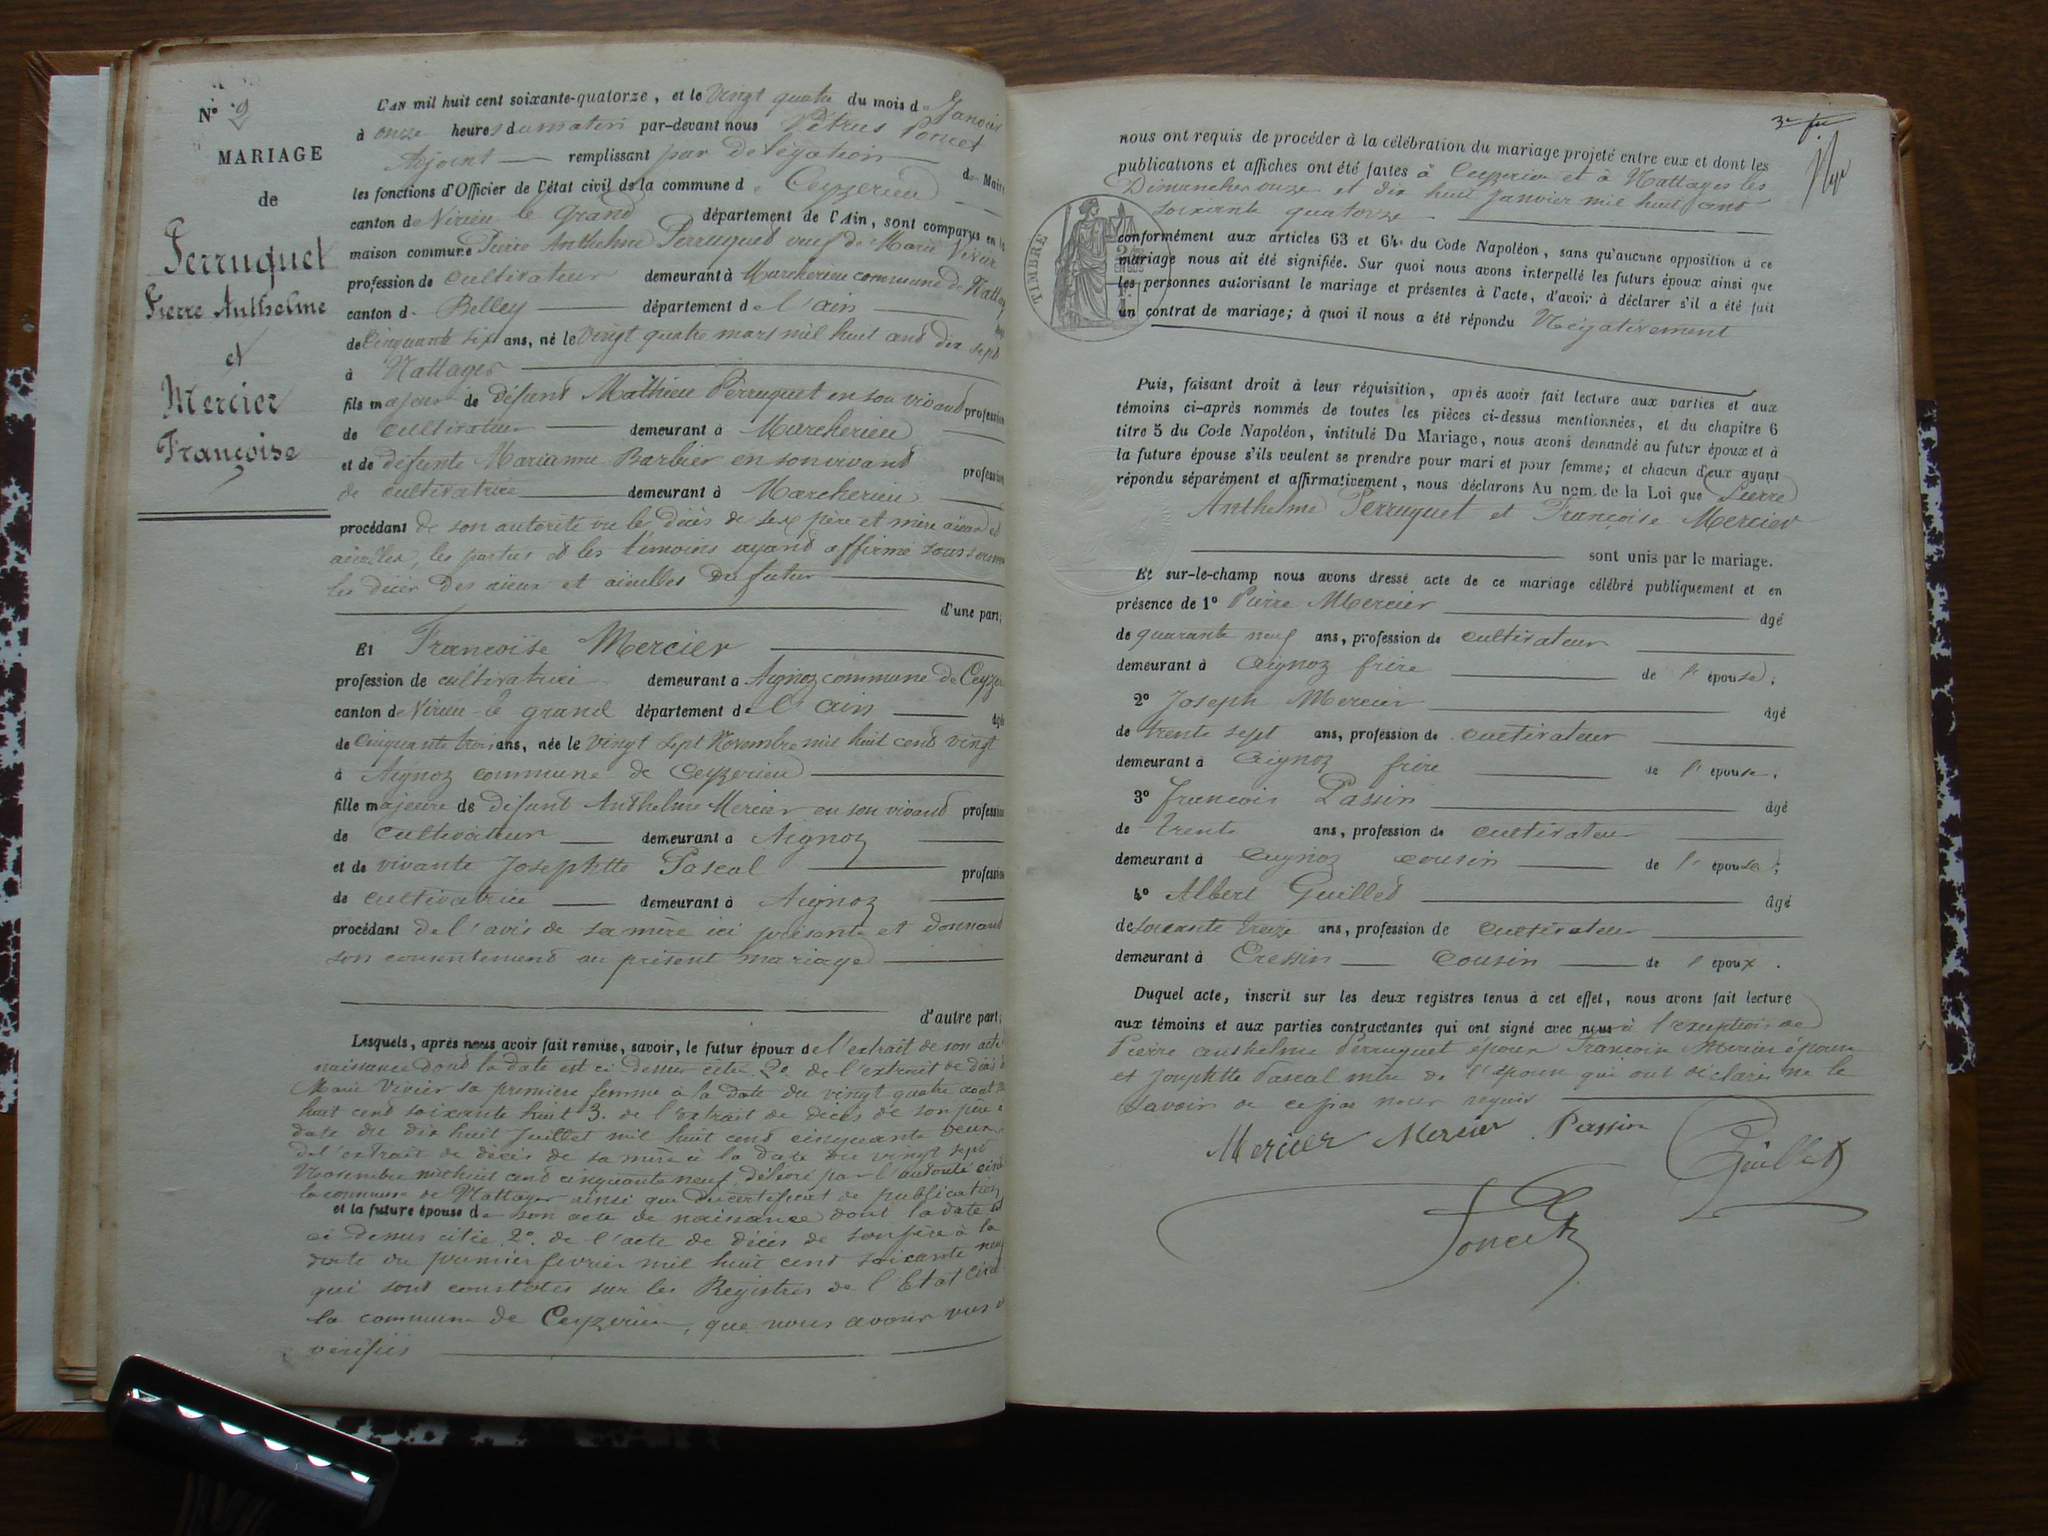 N° 9
MARIAGE
de
Perruquet
Pierre Anthelme
et
Mercier
Françoise
L'AN mil huit cent soixante-quatorze, et le vingt quatre du mois de Janvier
à onze heures du matin par-devant nous Pétrus Poncet
Adjoint remplissant par délégation du Maire
les fonctions d'Officier de l'état civil de la commune de Ceyzerieu
canton de Virieu le grand département de l'Ain, sont comparus en la
maison commune Pierre Anthelme Perruquet veuf de Marie Vivier
profession de cultivateur demeurant à Marcherieu commune de Nattages
canton de Belley département de l'ain
de cinquante six ans, né le vingt quatre mars mil huit cent dix sept
à Nattages
fils majeur de défunt Mathieu Perruquet en son vivant profession
de cultivateur demeurant à Marcherieu
et de défunte Marianne Barbier en son vivant profession
de cultivatrice demeurant à Marcherieu
procédant de son autorité vu le décès de ses père et mère aïeux et
aieulles, les parties et les témoins ayant affirmé sous serment
les décès des aieux et aieulles du futur
d'une part;
Et Françoise Mercier
profession de cultivatrice demeurant à Aignoz commune de Ceyze
canton de Virieu le grand département de l'ain âgée
de cinquante trois ans, née le vingt sept Novembre mil huit cent vingt
à Aignoz commune de Ceyzerieu
fille majeure de défunt Anthelme Mercier en son vivant profession
de cultivateur demeurant à Aignoz
et de vivante Josephtte Pascal profession
de cultivatrice demeurant à Aignoz
procédant de l'avis de sa mère ici présente et donnant
son consentement au présent mariage
d'autre part;
Lesquels, après nous avoir fait remise, savoir, le futur époux de l'extrait de son acte
naissance dont la date est ci dessus citée 2°. de l'extrait de décès de
Marie Vivier sa première femme à la date du vingt quatre août mil
huit cent soixante huit 3. de l'extrait de décès de son père à
date du dix huit Juillet mil huit cent cinquante deux
de l'extrait de décès de sa mère à la date du vingt sept
Novembre mil huit cent cinquante neuf, délivré par l'autorité civile
la commune de Nattages ainsi que du certificat de publication
et la future épouse de son acte de naissance dont la date est
ci dessus citée 2°. de l'acte de décès de son père à la
date du premier fevrier mil huit cent soixante neuf
qui sont constatés sur les Registres de l'Etat Civil
la commune de Ceyzerieu, que nous avons vus et
vérifiés
3e fu
nous ont requis de procéder à la célébration du mariage projeté entre eux et dont les
publications et affiches ont été faites à Ceyzerieu et à Nattages les
Dimanches onze et dix huit Janvier mil huit cent
soixante quatorze
TIMBRE
conformément aux articles 63 et 64 du Code Napoléon, sans qu'aucune opposition à ce
mariage nous ait été signifiée. Sur quoi nous avons interpellé les futurs époux ainsi que
les personnes autorisant le mariage et présentes à l'acte, d'avoir à déclarer s'il a été fait
un contrat de mariage; à quoi il nous a été répondu Négativement
Puis, faisant droit à leur réquisition, après avoir fait lecture aux parties et aux
témoins ci-après nommés de toutes les pièces ci-dessus mentionnées, et du chapitre 6
titre 5 du Code Napoléon, intitulé Du Mariage, nous avons demandé au futur époux et à
la future épouse s'ils veulent se prendre pour mari et pour femme; et chacun d'eux ayant
répondu séparément et affirmativement, nous déclarons Au nom de la Loi que Pierre
Anthelme Perruquet et Françoise Mercier
sont unis par le mariage.
Et sur-le-champ nous avons dressé acte de ce mariage célébré publiquement et en
présence de 1° Pierre Mercier âgé
de quarante neuf ans, profession de cultivateur
demeurant à Aignoz frère de l'épouse;
2° Joseph Mercier âgé
de trente sept ans, profession de cultivateur
demeurant à Aignoz frère de l'épouse;
3° françois Passin âgé
de trente ans, profession de cultivateur
demeurant à Aignoz cousin de l'épouse;
4° Albert Guillet âgé
de soixante treize ans, profession de cultivateur
demeurant à Cressin cousin de l'époux.
Duquel acte, inscrit sur les deux registres tenus à cet effet, nous avons fait lecture
aux témoins et aux parties contractantes qui ont signé avec nous à l'exception de
Pierre anthelme Perruquet époux Françoise Mercier épouse
et Josephtte Pascal mère de l'épouse qui ont déclaré ne le
savoir de ce par nous requis
Mercier Mercier Passin Guillet
Poncet